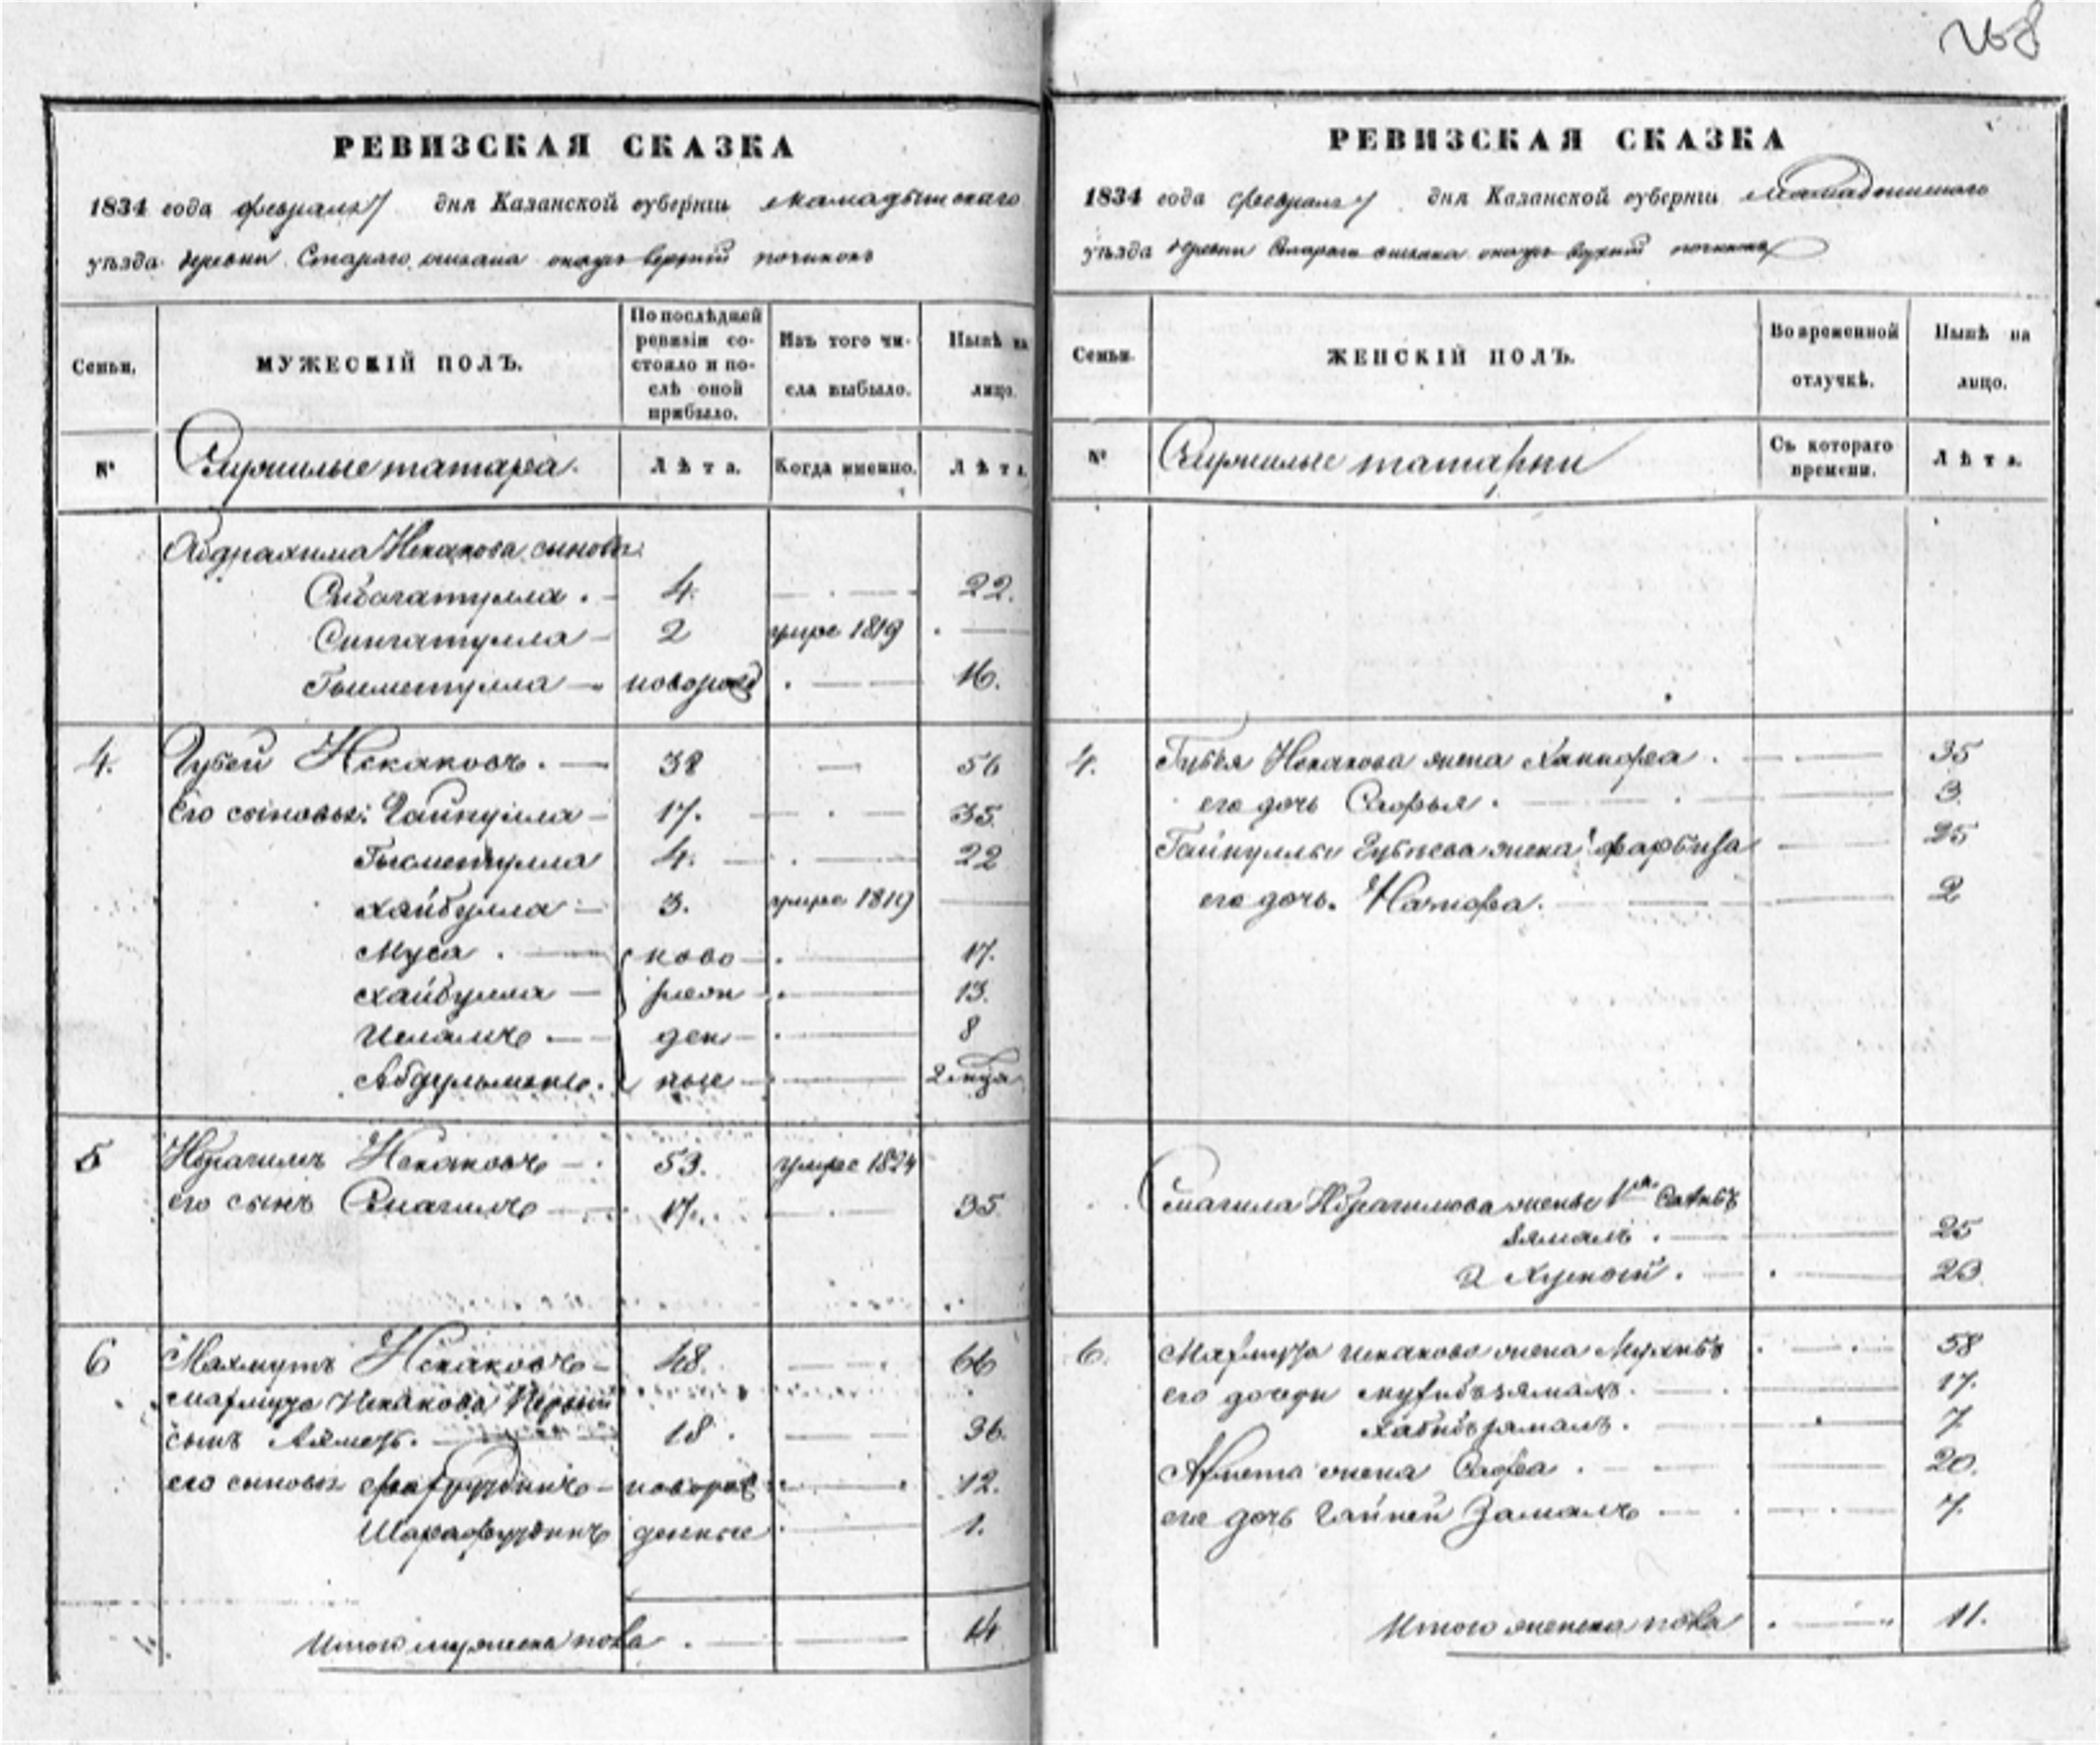 268
РЕВИЗСКАЯ СКАЗКА
1834 года февраля 7 дня Казанской губернiи Мамадышскаго
уѣзда деревни Стараго починокъ
Семьи.
МУЖЕСКIЙ ПОЛЪ.
По послѣдней ревизiи состояло и послѣ оной прибыло.
Изъ того числа выбыло.
Нынѣ на лицо.
№
Служилые татара.
Лѣта.
Когда именно.
Лѣта.
Абдрахима Искакова сыновья
Сибагатулла . 4. 22.
Сингатулла 2 умре 1819
Гисметулла новорожд 16.
4. Губей Искаковъ. 38 56
Его сыновья: Гайнулла 17. 35
Гисметулла 4. 22
Хайбулла 3. умре 1819
Муса . ново 17.
Хайбулла рож 13.
Исламъ ден 8
ные 2 мца
5 Ибрагимъ Искаковъ 53. умре 1824
его сынъ Смагилъ 17. 35
6 Махмутъ Искаковъ 48. 66
Махмута Искакова Первый
сынъ Ахметъ. 18. 36.
его сыновья Фахруддинъ новорож 12.
Шарафуддинъ денные 1.
Итого мужеска пола 14
РЕВИЗСКАЯ СКАЗКА
1834 года февраля 7 дня Казанской губернiи Мамадышскаго
уѣзда деревни Стараго починокъ
Семьи.
ЖЕНСКIЙ ПОЛЪ.
Во временной отлучкѣ.
Нынѣ на лицо.
№
Служилые татарки
Съ котораго времени.
Лѣта.
4. Губея Искакова жена 35
его дочь 3
Гайнуллы Губеева жена 25
его дочь. 2
Смагила Ибрагимова жены 1я
25
2 23
6. Искакова жена 58
его дочери 17.
7
жена 20.
его дочь 7.
Итого женска пола 11.